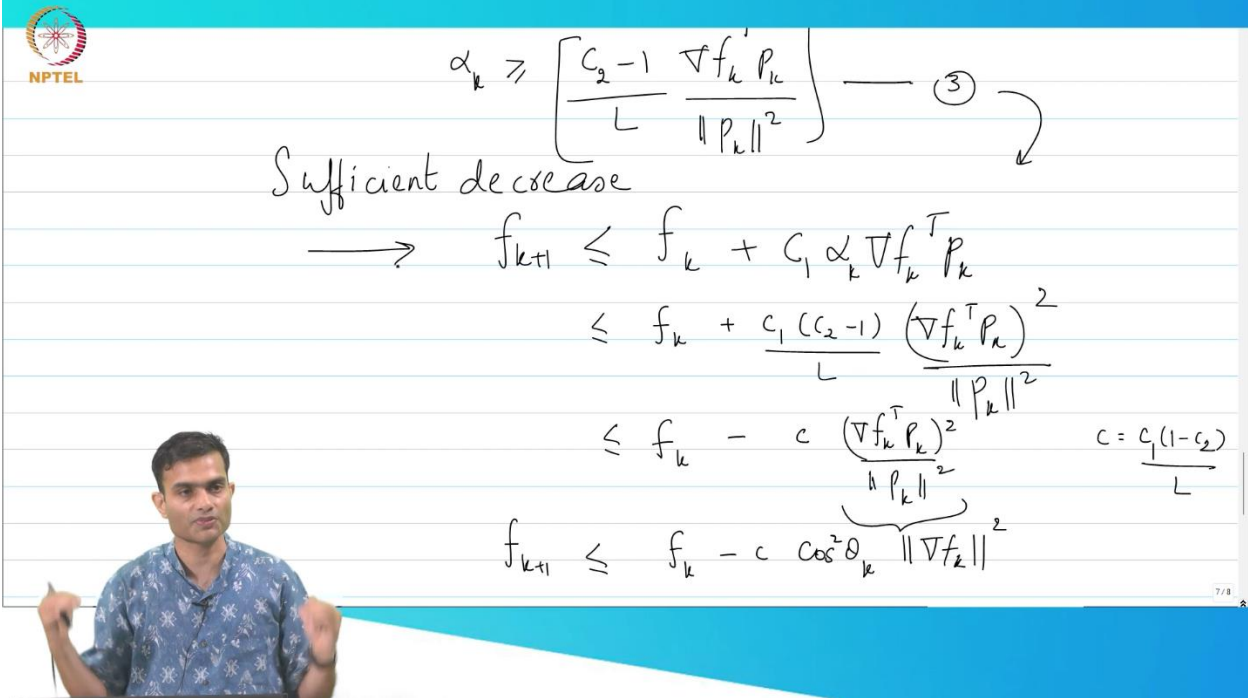 NPTEL
α_k ≥ [ (C₂ - 1)/L ∇f_k^T P_k / ‖P_k‖² ] —— ③
Sufficient decrease
⟶ f_{k+1} ≤ f_k + C₁ α_k ∇f_k^T P_k
≤ f_k + C₁ (C₂ - 1)/L (∇f_k^T P_k)² / ‖P_k‖²
≤ f_k - c (∇f_k^T P_k)² / ‖P_k‖² c = C₁(1 - C₂)/L
f_{k+1} ≤ f_k - c cos²θ_k ‖∇f_k‖²
7 / 8